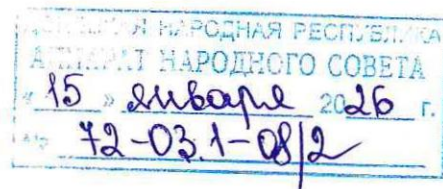 ДОНЕЦКАЯ НАРОДНАЯ РЕСПУБЛИКА
АППАРАТ НАРОДНОГО СОВЕТА
«15» января 2026 г.
№ 72-03.1-08/2